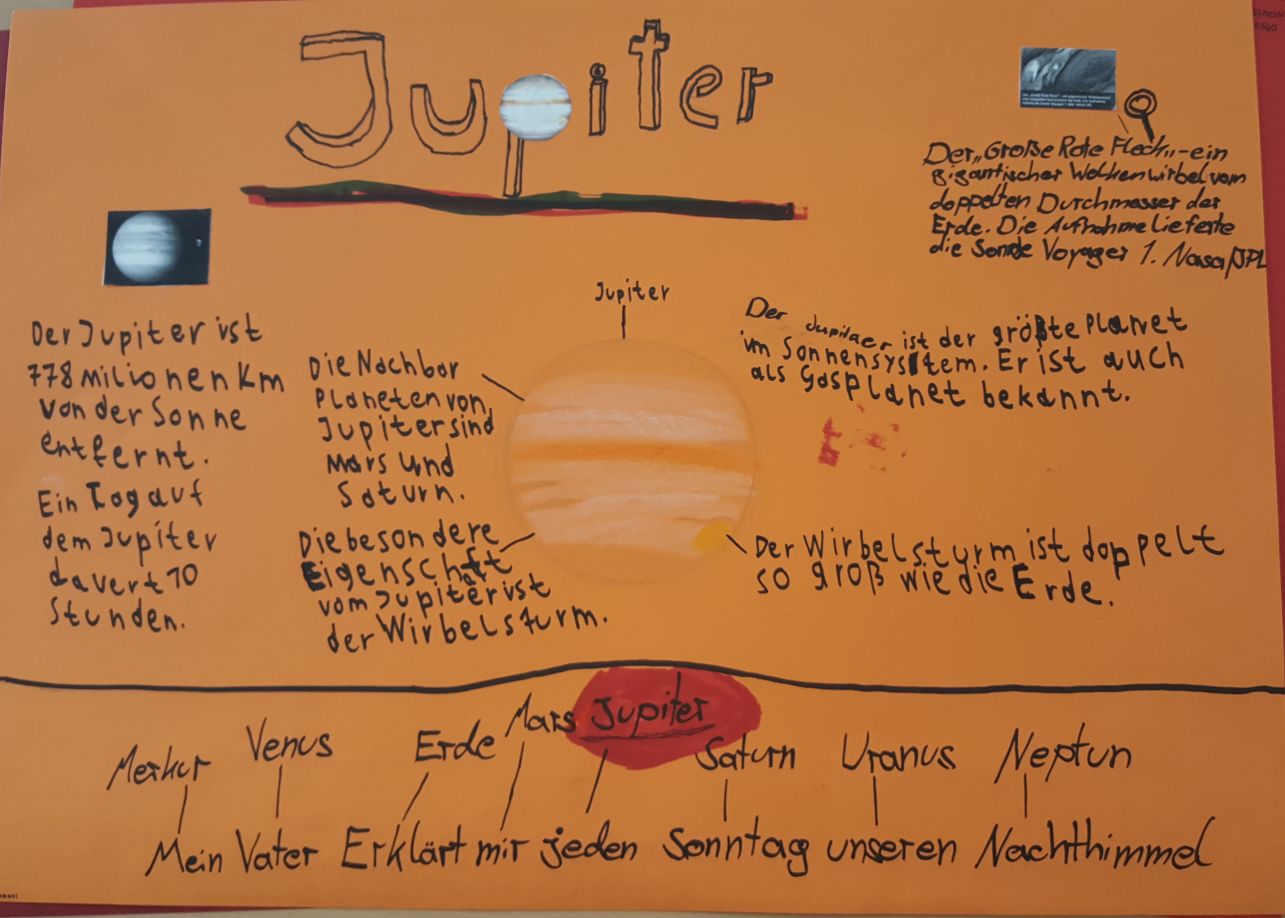 Jupiter
Der „Große Rote Fleck" - ein
gigantischer Wolkenwirbel vom
doppelten Durchmesser der
Erde. Die Aufnahme lieferte
die Sonde Voyager 1. Nasa/JPL
Der Jupiter ist
778 milionen Km
von der Sonne
entfernt.
Ein Tag auf
dem Jupiter
davert 10
Stunden.
Die Nachbar
Planeten von
Jupiter sind
Mars und
Saturn.
Die besondere
Eigenschaft
vom Jupiter ist
der Wirbelsturm.
Jupiter
Der Jupitaer ist der größte Planet
im Sonnensystem. Er ist auch
als Gasplanet bekannt.
Der Wirbelsturm ist doppelt
so groß wie die Erde.
Merkur Venus Erde Mars Jupiter Saturn Uranus Neptun
Mein Vater Erklärt mir jeden Sonntag unseren Nachthimmel